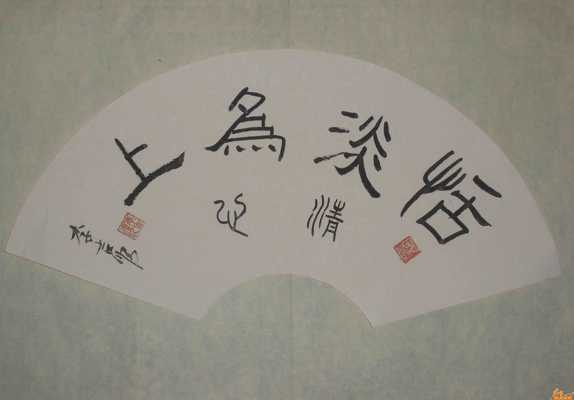 恬淡為上
清心